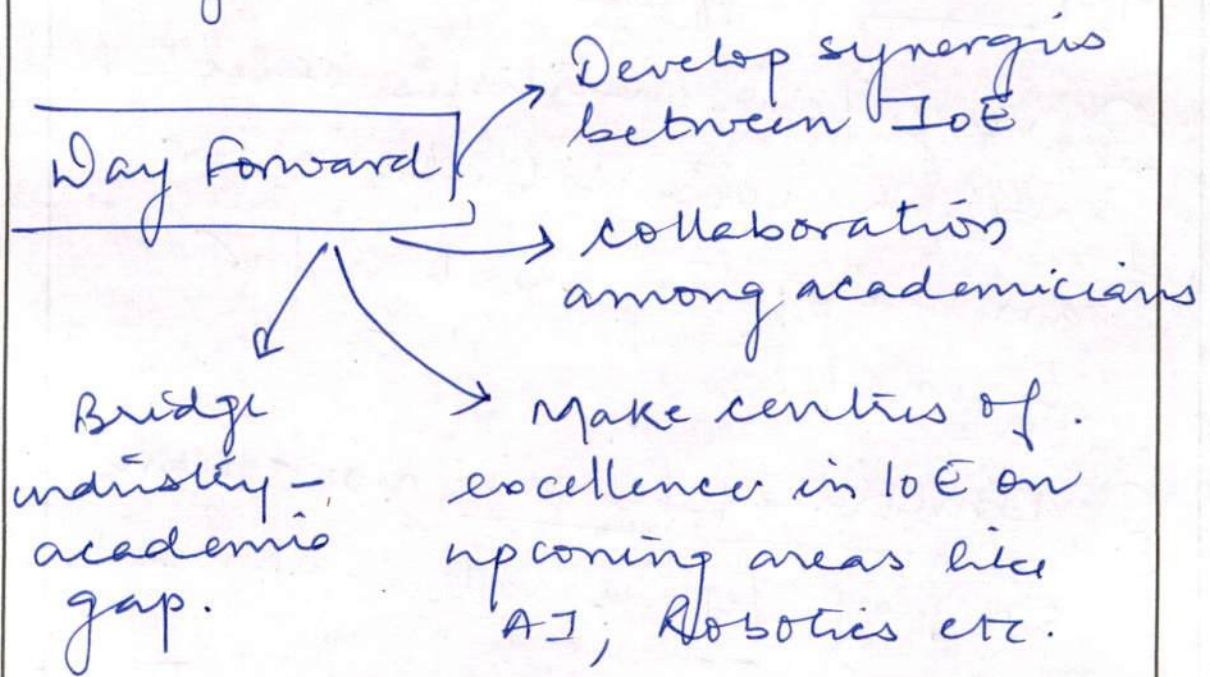 Way Forward
Develop synergies
between IoE
collaboration
among academicians
Bridge
industry-
academic
gap.
Make centres of.
excellence in IoE on
upcoming areas like
AI, Robotics etc.